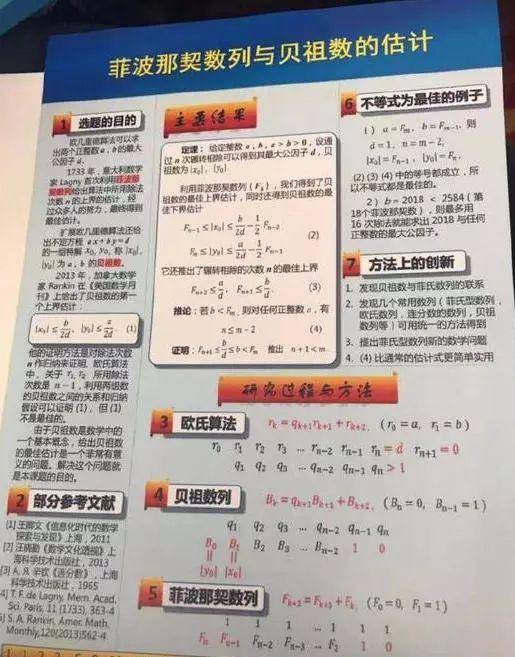 菲波那契数列与贝祖数的估计
1 选题的目的
欧几里德算法可以求
出两个正整数 a , b 的最大
公因子 d.
1733 年，意大利数学
家 Lagny 首次利用菲波那
契数列给出算法中所用除法
次数 n 的上界的估计，经
过众多人的努力，最终得到
最佳估计。
扩展欧几里德算法还给
出不定方程 ax+by=d
的一组特解 x₀, y₀, 称 |x₀|,
|y₀| 为 a , b 的贝祖数。
2013 年，加拿大数学
家 Rankin 在《美国数学月
刊》上给出了贝祖数的第一
个上界估计：
|x₀| ≤ b/2d, |y₀| ≤ a/2d. (1)
他的证明方法是对除法次数
n 作归纳来证明. 欧几里德算法
中，关于 r₁, r₂ 所用除法
次数是 n − 1，利用两组数
的贝祖数之间的关系和归纳
假设可以证明 (1)，但 (1)
不是最佳的。
由于贝祖数是数学中的
一个基本概念，给出贝祖数
的最佳估计是一个非常有意
义的问题。解决这个问题就
是本课题的目的。
2 部分参考文献
[1] 王卿文《信息化时代的数学
探索与发现》上海，2011
[2] 汪晓勤《数学文化透视》上
海科学技术出版社，2013
[3] A. Я. 辛钦《连分数》，上海
科学技术出版社，1965
[4] T. F. de Lagny. Mem. Acad.
Sci. Paris, 11 (1733), 363-4
[5] S. A. Rankin, Amer. Math.
Monthly,120(2013)562-4
主要结果
定理：给定整数 a , b , a > b > 0，设通
过 n 次辗转相除可以得到其最大公因子 d，贝
祖数为 |x₀|, |y₀|.
利用菲波那契数列 {Fₖ}，我们得到了贝
祖数的最佳上界估计，同时还得到贝祖数的最
佳下界估计
Fₙ₋₁ ≤ |x₀| ≤ b/2d − 1/2 Fₙ₋₂
(2)
Fₙ ≤ |y₀| ≤ a/2d − 1/2 Fₙ₋₁
它还推出了辗转相除的次数 n 的最佳上界
Fₙ₊₂ ≤ a/d, Fₙ₊₁ ≤ b/d. (3)
推论：若 b < Fₘ，则对任何正整数 a，有
n ≤ m − 2 (4)
证明：Fₙ₊₁ ≤ b/d ≤ b < Fₘ 推出 n + 1 < m.
研究过程与方法
3 欧氏算法 rₖ = qₖ₊₁rₖ₊₁ + rₖ₊₂, (r₀ = a, r₁ = b)
r₀ r₁ r₂ r₃ ... rₙ₋₂ rₙ₋₁ rₙ = d rₙ₊₁ = 0
q₁ q₂ q₃ ... qₙ₋₂ qₙ₋₁ qₙ > 1
4 贝祖数列 Bₖ = qₖ₊₁Bₖ₊₁ + Bₖ₊₂, (Bₙ = 0, Bₙ₋₁ = 1)
q₁ q₂ q₃ ... qₙ₋₂ qₙ₋₁ qₙ
B₀ B₁ B₂ B₃ ... Bₙ₋₂ 1 0
|| ||
|y₀| |x₀|
5 菲波那契数列 Fₖ₊₂ = Fₖ₊₁ + Fₖ, (F₀ = 0, F₁ = 1)
1 1 1 ... 1 1 1
Fₙ Fₙ₋₁ Fₙ₋₂ Fₙ₋₃ ... F₂ 1 0
6 不等式为最佳的例子
1) a = Fₘ, b = Fₘ₋₁, 则
d = 1, n = m − 2,
|x₀| = Fₙ₋₁, |y₀| = Fₙ,
(2) (3) (4) 中的等号都成立，所
以不等式都是最佳的。
2) b = 2018 < 2584 ( 第
18个菲波那契数 )，则最多用
16 次除法就能求出 2018 与任何
正整数的最大公因子。
7 方法上的创新
1. 发现贝祖数与菲氏数列的联系
2. 发现几个常用数列（菲氏型数列，
欧氏数列，连分数的数列，贝祖
数列等）可用统一的方法得到
3. 提出菲氏型数列新的数学问题
4. (4) 比通常的估计式更简单实用